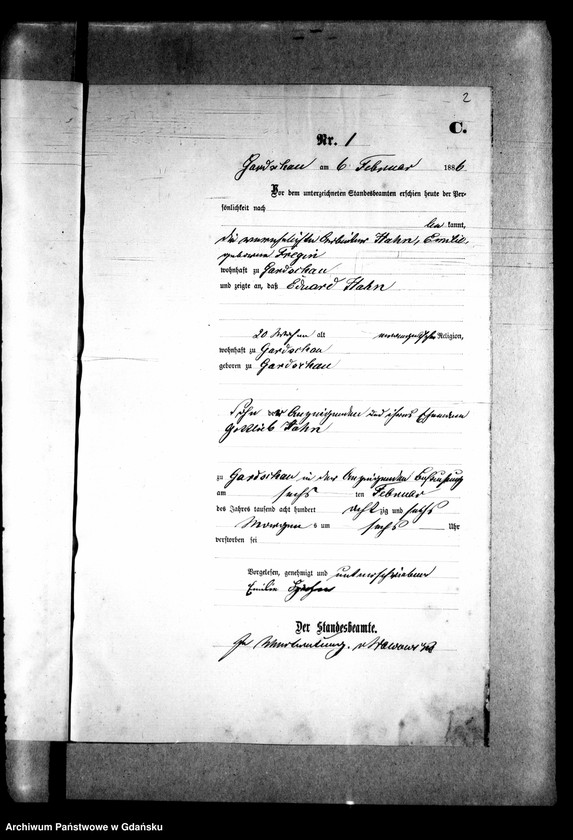 2
C.
Nr. 1
Gardschau am 6. Februar 1886
Vor dem unterzeichneten Standesbeamten erschien heute der Per-
sönlichkeit nach
be kannt,
die verehelichte Arbeiter Hahn, Emilie,
geborene Fregin
wohnhaft zu Gardschau
und zeigte an, daß Eduard Hahn
20 Wochen alt evangelischer Religion,
wohnhaft zu Gardschau
geboren zu Gardschau
Sohn der Anzeigenden und ihres Ehemannes
Gottlieb Hahn
zu Gardschau in der Anzeigenden Behausung
am sechs ten Februar
des Jahres tausend acht hundert acht zig und sechs
Morgen s um sechs Uhr
verstorben sei
Vorgelesen, genehmigt und unterschrieben
Emilie
Der Standesbeamte.
In Vertretung.
Archiwum Państwowe w Gdańsku